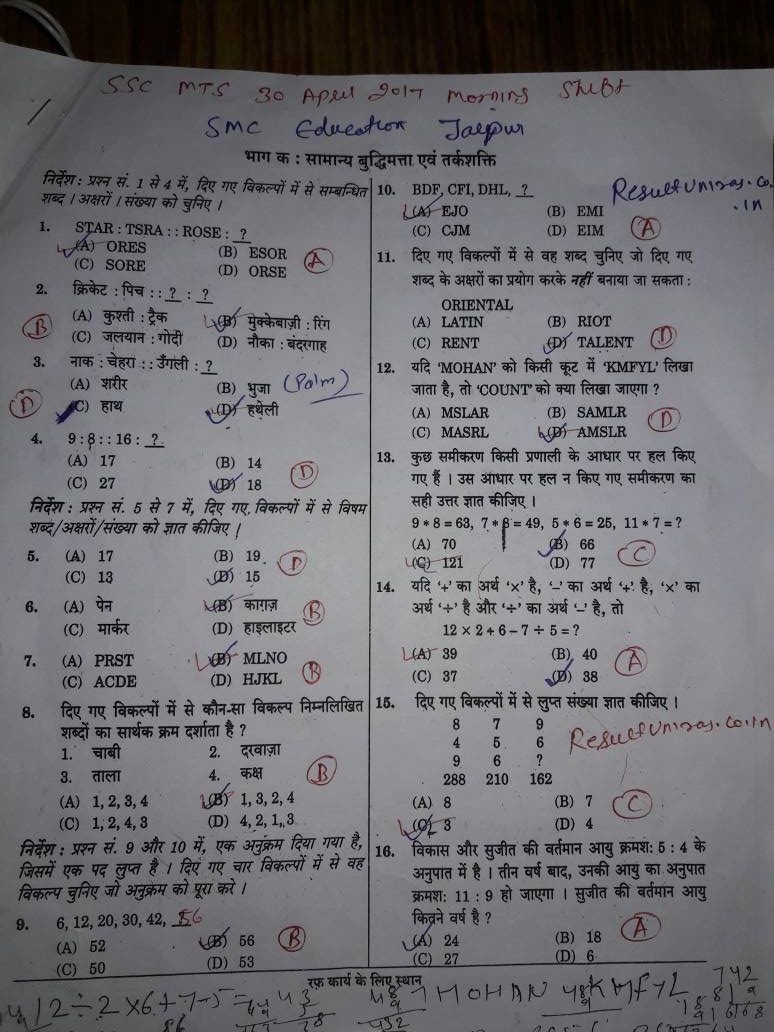 SSC MTS 30 April 2017 Morning Shift
SMC Education Jaipur
भाग क : सामान्य बुद्धिमत्ता एवं तर्कशक्ति
निर्देश : प्रश्न सं. 1 से 4 में, दिए गए विकल्पों में से सम्बन्धित
शब्द / अक्षरों / संख्या को चुनिए ।
1. STAR : TSRA : : ROSE : ?
(A) ORES (B) ESOR
(C) SORE (D) ORSE
A
2. क्रिकेट : पिच : : ? : ?
(A) कुश्ती : ट्रैक (B) मुक्केबाज़ी : रिंग
(C) जलयान : गोदी (D) नौका : बंदरगाह
B
3. नाक : चेहरा : : उँगली : ?
(A) शरीर (B) भुजा (Palm)
(C) हाथ (D) हथेली
D
4. 9 : 8 : : 16 : ?
(A) 17 (B) 14
(C) 27 (D) 18
D
निर्देश : प्रश्न सं. 5 से 7 में, दिए गए विकल्पों में से विषम
शब्द/अक्षरों/संख्या को ज्ञात कीजिए |
5. (A) 17 (B) 19
(C) 13 (D) 15
D
6. (A) पेन (B) काग़ज़
(C) मार्कर (D) हाइलाइटर
B
7. (A) PRST (B) MLNO
(C) ACDE (D) HJKL
B
8. दिए गए विकल्पों में से कौन-सा विकल्प निम्नलिखित
शब्दों का सार्थक क्रम दर्शाता है ?
1. चाबी 2. दरवाज़ा
3. ताला 4. कक्ष
B
(A) 1, 2, 3, 4 (B) 1, 3, 2, 4
(C) 1, 2, 4, 3 (D) 4, 2, 1, 3
निर्देश : प्रश्न सं. 9 और 10 में, एक अनुक्रम दिया गया है,
जिसमें एक पद लुप्त है । दिए गए चार विकल्पों में से वह
विकल्प चुनिए जो अनुक्रम को पूरा करे ।
9. 6, 12, 20, 30, 42, 56
(A) 52 (B) 56
(C) 50 (D) 53
B
10. BDF, CFI, DHL, ?
ResultUniraj.co.in
(A) EJO (B) EMI
(C) CJM (D) EIM
A
11. दिए गए विकल्पों में से वह शब्द चुनिए जो दिए गए
शब्द के अक्षरों का प्रयोग करके नहीं बनाया जा सकता :
ORIENTAL
(A) LATIN (B) RIOT
(C) RENT (D) TALENT
D
12. यदि 'MOHAN' को किसी कूट में 'KMFYL' लिखा
जाता है, तो 'COUNT' को क्या लिखा जाएगा ?
(A) MSLAR (B) SAMLR
(C) MASRL (D) AMSLR
D
13. कुछ समीकरण किसी प्रणाली के आधार पर हल किए
गए हैं । उस आधार पर हल न किए गए समीकरण का
सही उत्तर ज्ञात कीजिए ।
9 * 8 = 63, 7 * 8 = 49, 5 * 6 = 25, 11 * 7 = ?
(A) 70 (B) 66
(C) 121 (D) 77
C
14. यदि '+' का अर्थ '×' है, '–' का अर्थ '+' है, '×' का
अर्थ '÷' है और '÷' का अर्थ '–' है, तो
12 × 2 + 6 – 7 ÷ 5 = ?
(A) 39 (B) 40
(C) 37 (D) 38
A
15. दिए गए विकल्पों में से लुप्त संख्या ज्ञात कीजिए ।
8 7 9
4 5 6
9 6 ?
288 210 162
ResultUniraj.co.in
(A) 8 (B) 7
(C) 3 (D) 4
C
16. विकास और सुजीत की वर्तमान आयु क्रमशः 5 : 4 के
अनुपात में है । तीन वर्ष बाद, उनकी आयु का अनुपात
क्रमशः 11 : 9 हो जाएगा । सुजीत की वर्तमान आयु
कितने वर्ष है ?
(A) 24 (B) 18
(C) 27 (D) 6
A
रफ़ कार्य के लिए स्थान
12 ÷ 2 × 6 + 7 - 5 =
MOHAN KMFYL